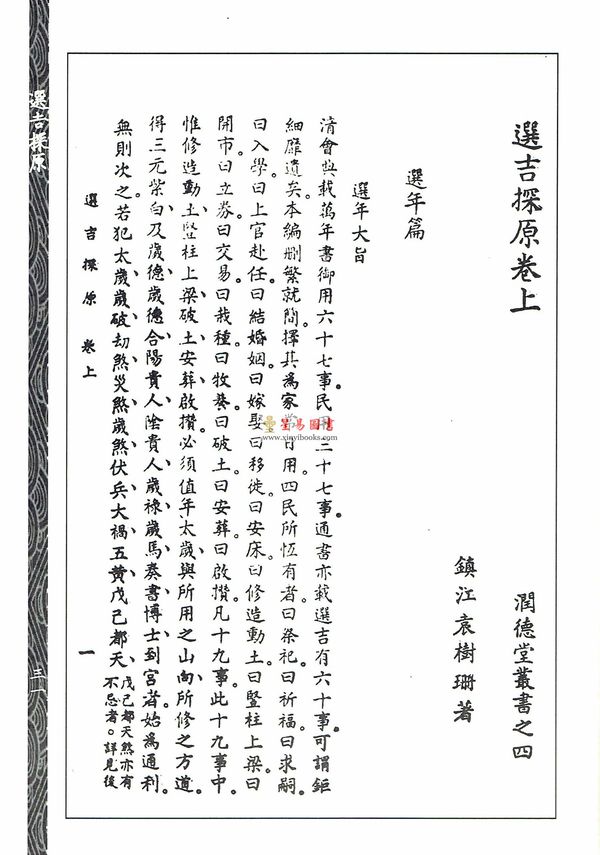 選吉探原卷上
潤德堂叢書之四
鎮江袁樹珊著
選年篇
選年大旨
清會典載萬年書御用六十七事。民用三十七事。通書亦載選吉有六十事。可謂鉅
細靡遺矣。本編刪繁就簡。擇其為家常日用。四民所恆有者。曰祭祀。曰祈福。曰求嗣。
曰入學。曰上官赴任。曰結婚姻。曰嫁娶。曰移徙。曰安床。曰修造動土。曰豎柱上梁。曰
開市。曰立券。曰交易。曰栽種。曰牧養。曰破土。曰安葬。曰啟攢。凡十九事。此十九事中。
惟修造動土、豎柱上梁、破土、安葬、啟攢、必須值年太歲、與所用之山向、所修之方道。
得三元紫白、及歲德、歲德合、陽貴人、陰貴人、歲祿、歲馬、奏書、博士、到宮者。始為通利。
無則次之。若犯太歲、歲破、劫煞、災煞、歲煞、伏兵、大禍、五黃、戊己都天、戊己都天煞亦有
不忌者。詳見後
選吉探原 卷上
一
選吉探原
三一
星易圖書
www.xinyibooks.com